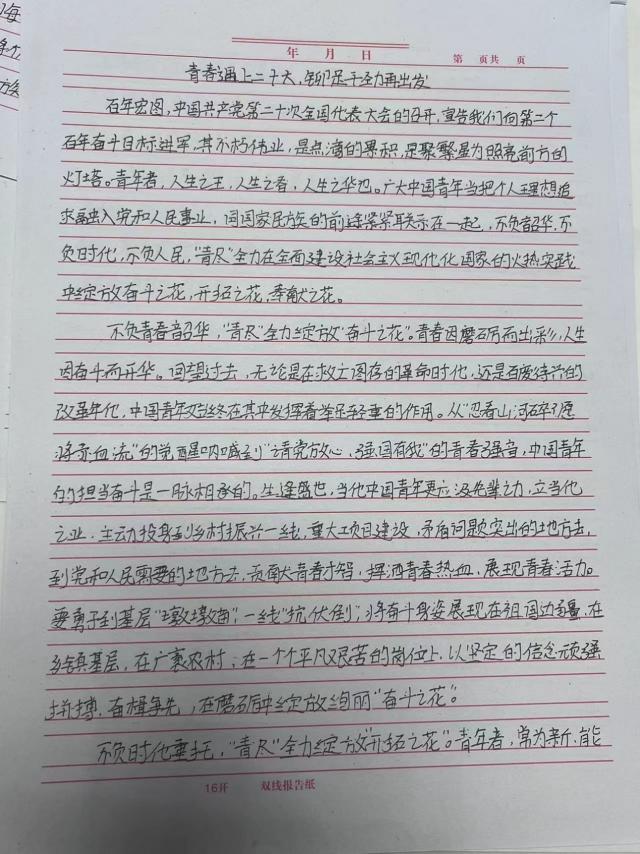 海
年 月 日 第 页共 页
青春遇上二十大,铆足干劲力再出发
百年宏图,中国共产党第二十次全国代表大会的召开,宣告我们向第二个
百年奋斗目标进军,其不朽伟业,是点滴的累积,是聚繁星为照亮前方的
灯塔。青年者,人生之王,人生之春,人生之华也。广大中国青年当把个人理想追
求融入党和人民事业,同国家民族的前途紧紧联系在一起,不负韶华,不
负时代,不负人民,“青尽”全力在全面建设社会主义现代化国家的火热实践
中绽放奋斗之花,开拓之花,奉献之花。
不负青春韶华,“青尽”全力绽放“奋斗之花”。青春因磨砺而出彩,人生
因奋斗而升华。回望过去,无论是在救亡图存的革命时代,还是百废待兴的
改革年代,中国青年始终在其中发挥着举足轻重的作用。从“忍看山河碎,愿
将赤血流”的觉醒呐喊到“请党放心,强国有我”的青春强音,中国青年
的担当奋斗是一脉相承的。生逢盛世,当代中国青年更应汲先辈之力,立当代
之业,主动投身到乡村振兴一线,重大工项目建设,矛盾问题突出的地方去,
到党和人民需要的地方去,贡献大青春才智,挥洒青春热血,展现青春活力。
要勇于到基层“墩墩苗”,一线“抗伏倒”,将奋斗身姿展现在祖国边疆,在
乡镇基层,在广袤农村,在一个个平凡又艰苦的岗位上,以坚定的信念顽强
拼搏,奋楫争先,在磨砺中绽放绚丽“奋斗之花”。
不负时代重托,“青尽”全力绽放“开拓之花”。青年者,常为新,能
16开 双线报告纸